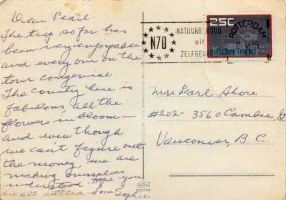 Dear Pearl
The trip so far has
been very enjoyable
and everyone on the
tour congenial.
The country here is
fabulous, all the
flowers in bloom —
and even though
we can't figure out
the money, we are
making ourselves
understood. Hope you
are all
Sophie
N70
NATUUR
ZELFBEHOUD
25c
ROTTERDAM
nederland
Mrs Pearl Shore
#202 - 3560 Cambie
Vancouver, B.C.